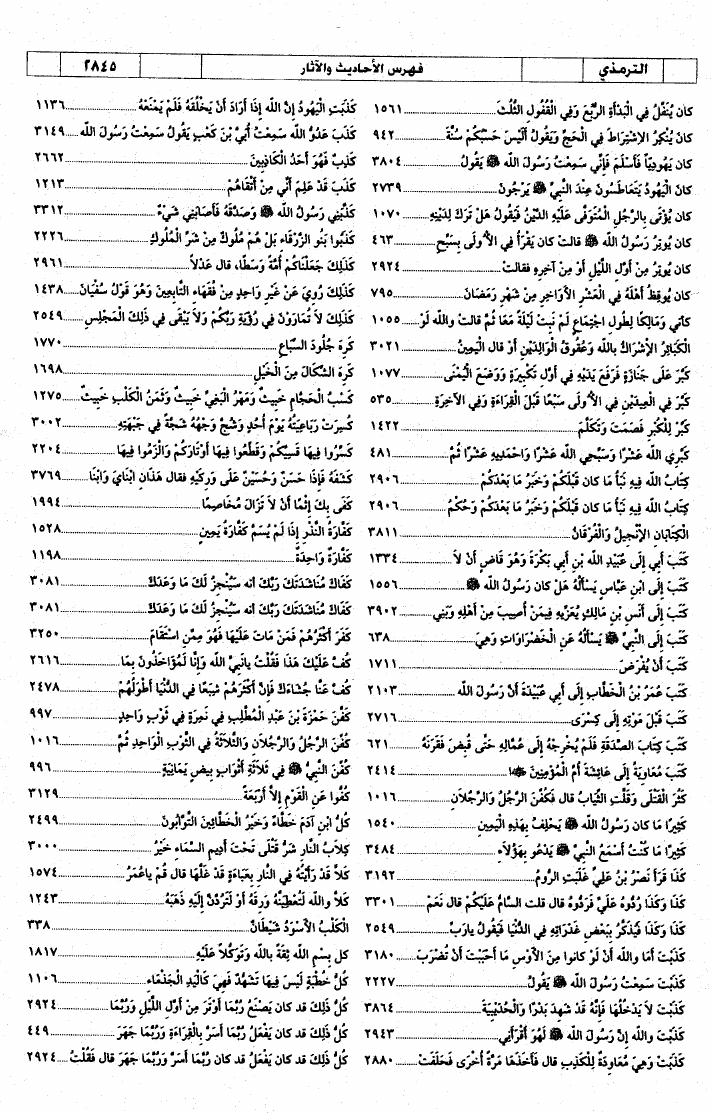 الترمذي
فهرس الأحاديث والآثار
٢٨٤٥
كان يُنَفِّلُ فِي الْبَدْأَةِ الرُّبُعَ وَفِي الْقُفُولِ الثُّلُثَ ١٥٦١
كان يُنْكِرُ الاِشْتِرَاطَ فِي الْحَجِّ وَيَقُولُ أَلَيْسَ حَسْبُكُمْ سُنَّةَ ٩٤٢
كان يَهُودِيًّا فَأَسْلَمَ فَإِنِّي سَمِعْتُ رَسُولَ الله ﷺ يَقُولُ ٣٨٠٤
كانَ الْيَهُودُ يَتَعَاطَسُونَ عِنْدَ النَّبِيِّ ﷺ يَرْجُونَ ٢٧٣٩
كان يُؤْتَى بِالرَّجُلِ الْمُتَوَفَّى عَلَيْهِ الدَّيْنُ فَيَقُولُ هَلْ تَرَكَ لِدَيْنِهِ ١٠٧٠
كان يُوتِرُ رَسُولُ الله ﷺ قالت كان يَقْرَأُ فِي الأُولَى بِسَبِّحِ ٤٦٣
كان يُوتِرُ مِنْ أَوَّلِ اللَّيْلِ أَوْ مِنْ آخِرِهِ فقالت ٢٩٢٤
كان يُوقِظُ أَهْلَهُ فِي الْعَشْرِ الأَوَاخِرِ مِنْ شَهْرِ رَمَضَانَ ٧٩٥
كأنّي وَمَالِكًا لِطُولِ اجْتِمَاعٍ لَمْ نَبِتْ لَيْلَةً مَعًا ثُمَّ قالت والله لَوْ ١٠٥٥
الْكَبَائِرُ الإِشْرَاكُ بِالله وَعُقُوقُ الْوَالِدَيْنِ أَوْ قال الْيَمِينُ ٣٠٢١
كَبَّرَ عَلَى جَنَازَةٍ فَرَفَعَ يَدَيْهِ فِي أَوَّلِ تَكْبِيرَةٍ وَوَضَعَ الْيُمْنَى ١٠٧٧
كَبَّرَ فِي الْعِيدَيْنِ فِي الأُولَى سَبْعًا قَبْلَ الْقِرَاءَةِ وَفِي الآخِرَةِ ٥٣٥
كَبِّرْ لِلْكُبْرِ فَصَمَتَ وَتَكَلَّمَ ١٤٢٢
كَبِّرِي الله عَشْرًا وَسَبِّحِي الله عَشْرًا وَاحْمَدِيهِ عَشْرًا ثُمَّ ٤٨١
كِتَابُ الله فِيهِ نَبَأُ مَا كان قَبْلَكُمْ وَخَبَرُ مَا بَعْدَكُمْ ٢٩٠٦
كِتَابُ الله فِيهِ نَبَأُ مَا كان قَبْلَكُمْ وَخَبَرُ مَا بَعْدَكُمْ وَحُكْمُ ٢٩٠٦
الْكِتَابَانِ الإِنْجِيلُ وَالْفُرْقَانُ ٣٨١١
كَتَبَ أَبِي إِلَى عُبَيْدِ الله بْنِ أَبِي بَكْرَةَ وَهُوَ قَاضٍ أَنْ لاَ ١٣٣٤
كَتَبَ إِلَى ابْنِ عَبَّاسٍ يَسْأَلُهُ هَلْ كان رَسُولُ الله ﷺ ١٥٥٦
كَتَبَ إِلَى أَنَسِ بْنِ مَالِكٍ يُعَزِّيهِ فِيمَنْ أُصِيبَ مِنْ أَهْلِهِ وَبَنِي ٣٩٠٢
كَتَبَ إِلَى النَّبِيِّ ﷺ يَسْأَلُهُ عَنِ الْخَضْرَاوَاتِ وَهِيَ ٦٣٨
كَتَبَ أَنْ يُفْرَضَ ١٧١١
كَتَبَ عُمَرُ بْنُ الْخَطَّابِ إِلَى أَبِي عُبَيْدَةَ أَنَّ رَسُولَ الله ٢١٠٣
كَتَبَ قَبْلَ مَوْتِهِ إِلَى كِسْرَى ٢٧١٦
كَتَبَ كِتَابَ الصَّدَقَةِ فَلَمْ يُخْرِجْهُ إِلَى عُمَّالِهِ حَتَّى قُبِضَ فَقَرَنَهُ ٦٢١
كَتَبَ مُعَاوِيَةُ إِلَى عَائِشَةَ أُمِّ الْمُؤْمِنِينَ ٢٤١٤
كَثُرَ الْقَتْلَى وَقَلَّتِ الثِّيَابُ قال فَكُفِّنَ الرَّجُلُ وَالرَّجُلاَنِ ١٠١٦
كَثِيرًا مَا كان رَسُولُ الله ﷺ يَحْلِفُ بِهَذِهِ الْيَمِينِ ١٥٤٠
كَثِيرًا مَا كُنْتُ أَسْمَعُ النَّبِيَّ ﷺ يَدْعُو بِهَؤُلاَءِ ٣٤٨٤
كَذَا قَرَأَ نَصْرُ بْنُ عَلِيٍّ غَلَبَتِ الرُّومُ ٣١٩٢
كَذَا وَكَذَا رُدُّوهُ عَلَيَّ فَرَدُّوهُ قال قلت السَّامُ عَلَيْكُمْ قال نَعَمْ ٣٣٠١
كَذَا وَكَذَا فَيُذَكِّرُ بِبَعْضِ غَدَرَاتِهِ فِي الدُّنْيَا فَيَقُولُ يارَبِّ ٢٥٤٩
كَذَبْتَ أَمَا والله أَنْ لَوْ كانوا مِنَ الأَوْسِ مَا أَحْبَبْتَ أَنْ تُضْرَبَ ٣١٨٠
كَذَبْتَ سَمِعْتُ رَسُولَ الله ﷺ يَقُولُ ٢٢٢٧
كَذَبْتَ لاَ يَدْخُلُهَا فَإِنَّهُ قَدْ شَهِدَ بَدْرًا وَالْحُدَيْبِيَةَ ٣٨٦٤
كَذَبْتَ والله إِنَّ رَسُولَ الله ﷺ لَهُوَ أَقْرَأَنِي ٢٩٤٣
كَذَبَتْ وَهِيَ مُعَاوِدَةٌ لِلْكَذِبِ قال فَأَخَذَهَا مَرَّةً أُخْرَى فَحَلَفَتْ ٢٨٨٠
كَذَبَتِ الْيَهُودُ إِنَّ الله إِذَا أَرَادَ أَنْ يَخْلُقَهُ فَلَمْ يَمْنَعْهُ ١١٣٦
كَذَبَ عَدُوُّ الله سَمِعْتُ أُبَيَّ بْنَ كَعْبٍ يَقُولُ سَمِعْتُ رَسُولَ الله ٣١٤٩
كَذِبٌ فَهُوَ أَحَدُ الْكَاذِبِينَ ٢٦٦٢
كَذَبَ قَدْ عَلِمَ أَنِّي مِنْ أَتْقَاهُمْ ١٢١٣
كَذَّبَنِي رَسُولُ الله ﷺ وَصَدَّقَهُ فَأَصَابَنِي شَيْءٌ ٣٣١٢
كَذَبُوا بَنُو الزَّرْقَاءِ بَلْ هُمْ مُلُوكٌ مِنْ شَرِّ الْمُلُوكِ ٢٢٢٦
كَذَلِكَ جَعَلْنَاكُمْ أُمَّةً وَسَطًا، قال عَدْلاً ٢٩٦١
كَذَلِكَ رُوِيَ عَنْ غَيْرِ وَاحِدٍ مِنْ فُقَهَاءِ التَّابِعِينَ وَهُوَ قَوْلُ سُفْيَانَ ١٤٣٨
كَذَلِكَ لاَ تُمَارَوْنَ فِي رُؤْيَةِ رَبِّكُمْ وَلاَ يَبْقَى فِي ذَلِكَ الْمَجْلِسِ ٢٥٤٩
كَرِهَ جُلُودَ السِّبَاعِ ١٧٧٠
كَرِهَ الشِّكَالَ مِنَ الْخَيْلِ ١٦٩٨
كَسْبُ الْحَجَّامِ خَبِيثٌ وَمَهْرُ الْبَغِيِّ خَبِيثٌ وَثَمَنُ الْكَلْبِ خَبِيثٌ ١٢٧٥
كُسِرَتْ رَبَاعِيَتُهُ يَوْمَ أُحُدٍ وَشُجَّ وَجْهُهُ شَجَّةً فِي جَبْهَتِهِ ٣٠٠٢
كَسِّرُوا فِيهَا قَسِيَّكُمْ وَقَطِّعُوا فِيهَا أَوْتَارَكُمْ وَالْزَمُوا فِيهَا ٢٢٠٤
كَشَفَهُ فَإِذَا حَسَنٌ وَحُسَيْنٌ عَلَى وَرِكَيْهِ فقال هَذَانِ ابْنَايَ وَابْنَا ٣٧٦٩
كَفَى بِكَ إِثْمًا أَنْ لاَ تَزَالَ مُخَاصِمًا ١٩٩٤
كَفَّارَةُ النَّذْرِ إِذَا لَمْ يُسَمَّ كَفَّارَةُ يَمِينٍ ١٥٢٨
كَفَّارَةٌ وَاحِدَةٌ ١١٩٨
كَفَاكَ مُنَاشَدَتَكَ رَبَّكَ أنه سَيُنْجِزُ لَكَ مَا وَعَدَكَ ٣٠٨١
كَفَاكَ مُنَاشَدَتَكَ رَبَّكَ أنه سَيُنْجِزُ لَكَ مَا وَعَدَكَ ٣٠٨١
كَفَرَ أَكْثَرُهُمْ فَمَنْ مَاتَ عَلَيْهَا فَهُوَ مِمَّنِ اسْتَقَامَ ٣٢٥٠
كُفَّ عَلَيْكَ هَذَا فَقُلْتُ يانَبِيَّ الله وَإِنَّا لَمُؤَاخَذُونَ بِمَا ٢٦١٦
كُفَّ عَنَّا جُشَاءَكَ فَإِنَّ أَكْثَرَهُمْ شِبَعًا فِي الدُّنْيَا أَطْوَلُهُمْ ٢٤٧٨
كَفَّنَ حَمْزَةَ بْنَ عَبْدِ الْمُطَّلِبِ فِي نَمِرَةٍ فِي ثَوْبٍ وَاحِدٍ ٩٩٧
كُفِّنَ الرَّجُلُ وَالرَّجُلاَنِ وَالثَّلاَثَةُ فِي الثَّوْبِ الْوَاحِدِ ثُمَّ ١٠١٦
كُفِّنَ النَّبِيُّ ﷺ فِي ثَلاَثَةِ أَثْوَابٍ بِيضٍ يَمَانِيَةٍ ٩٩٦
كُفُّوا عَنِ الْقَوْمِ إِلاَّ أَرْبَعَةً ٣١٢٩
كُلُّ ابْنِ آدَمَ خَطَّاءٌ وَخَيْرُ الْخَطَّائِينَ التَّوَّابُونَ ٢٤٩٩
كِلاَبُ النَّارِ شَرُّ قَتْلَى تَحْتَ أَدِيمِ السَّمَاءِ خَيْرُ ٣٠٠٠
كَلاَّ قَدْ رَأَيْتُهُ فِي النَّارِ بِعَبَاءَةٍ قَدْ غَلَّهَا قال قُمْ ياعُمَرُ ١٥٧٤
كَلاَّ والله لَتُعْطِيَنَّهُ وَرِقَهُ أَوْ لَتَرُدَّنَّ إِلَيْهِ ذَهَبَهُ ١٢٤٣
الْكَلْبُ الأَسْوَدُ شَيْطَانٌ ٣٣٨
كل بِسْمِ الله ثِقَةً بالله وَتَوَكُّلاً عَلَيْهِ ١٨١٧
كُلُّ خُطْبَةٍ لَيْسَ فِيهَا تَشَهُّدٌ فَهِيَ كَالْيَدِ الْجَذْمَاءِ ١١٠٦
كُلُّ ذَلِكَ قد كان يَصْنَعُ رُبَّمَا أَوْتَرَ مِنْ أَوَّلِ اللَّيْلِ وَرُبَّمَا ٢٩٢٤
كُلُّ ذَلِكَ قد كان يَفْعَلُ رُبَّمَا أَسَرَّ بِالْقِرَاءَةِ وَرُبَّمَا جَهَرَ ٤٤٩
كُلُّ ذَلِكَ قد كان يَفْعَلُ قد كان رُبَّمَا أَسَرَّ وَرُبَّمَا جَهَرَ قال فَقُلْتُ ٢٩٢٤